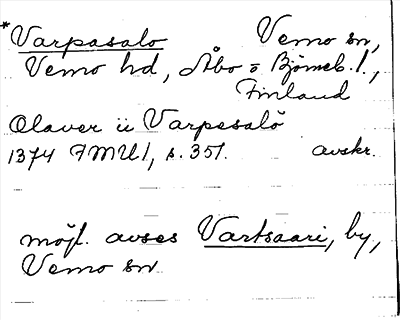 *Varpasalo Vemo sn,
Vemo hd, Åbo o Björneb. l.,
Finland
Olaver ii Varpesalö
1374 FMU 1, s. 351. avskr.
möjl. avses Vartsaari, by,
Vemo sn